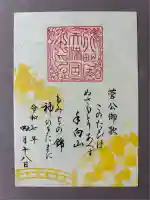 菅公御歌
このたびは
ぬさもとりあへず
手向山
もみぢの錦
神のまにまに
令和七年
四月十八日